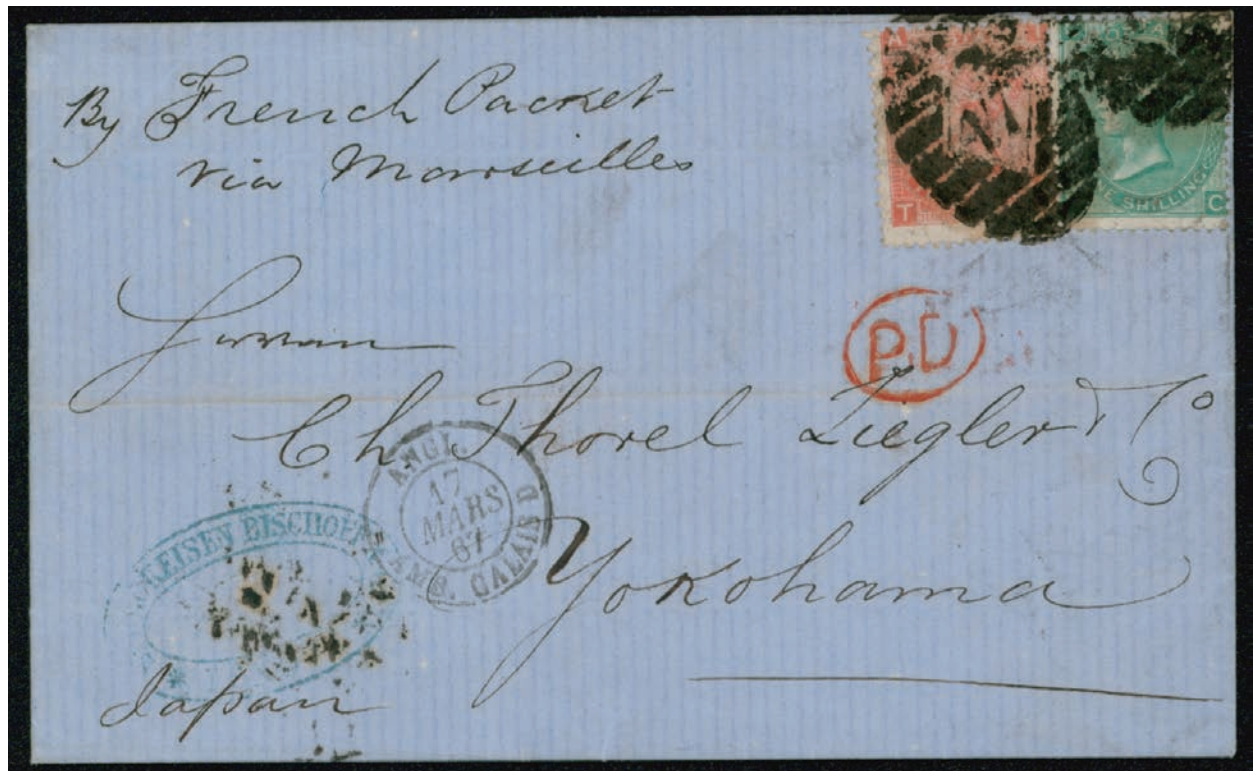 By French Packet
via Marseilles
71
T
E SHILLING
C
P.D
Herren
Ch Thorel Ziegler & Co
ANGL.
17
MARS
67
AMB. CALAIS D
EISEN BISCHOF
Yokohama
Japan